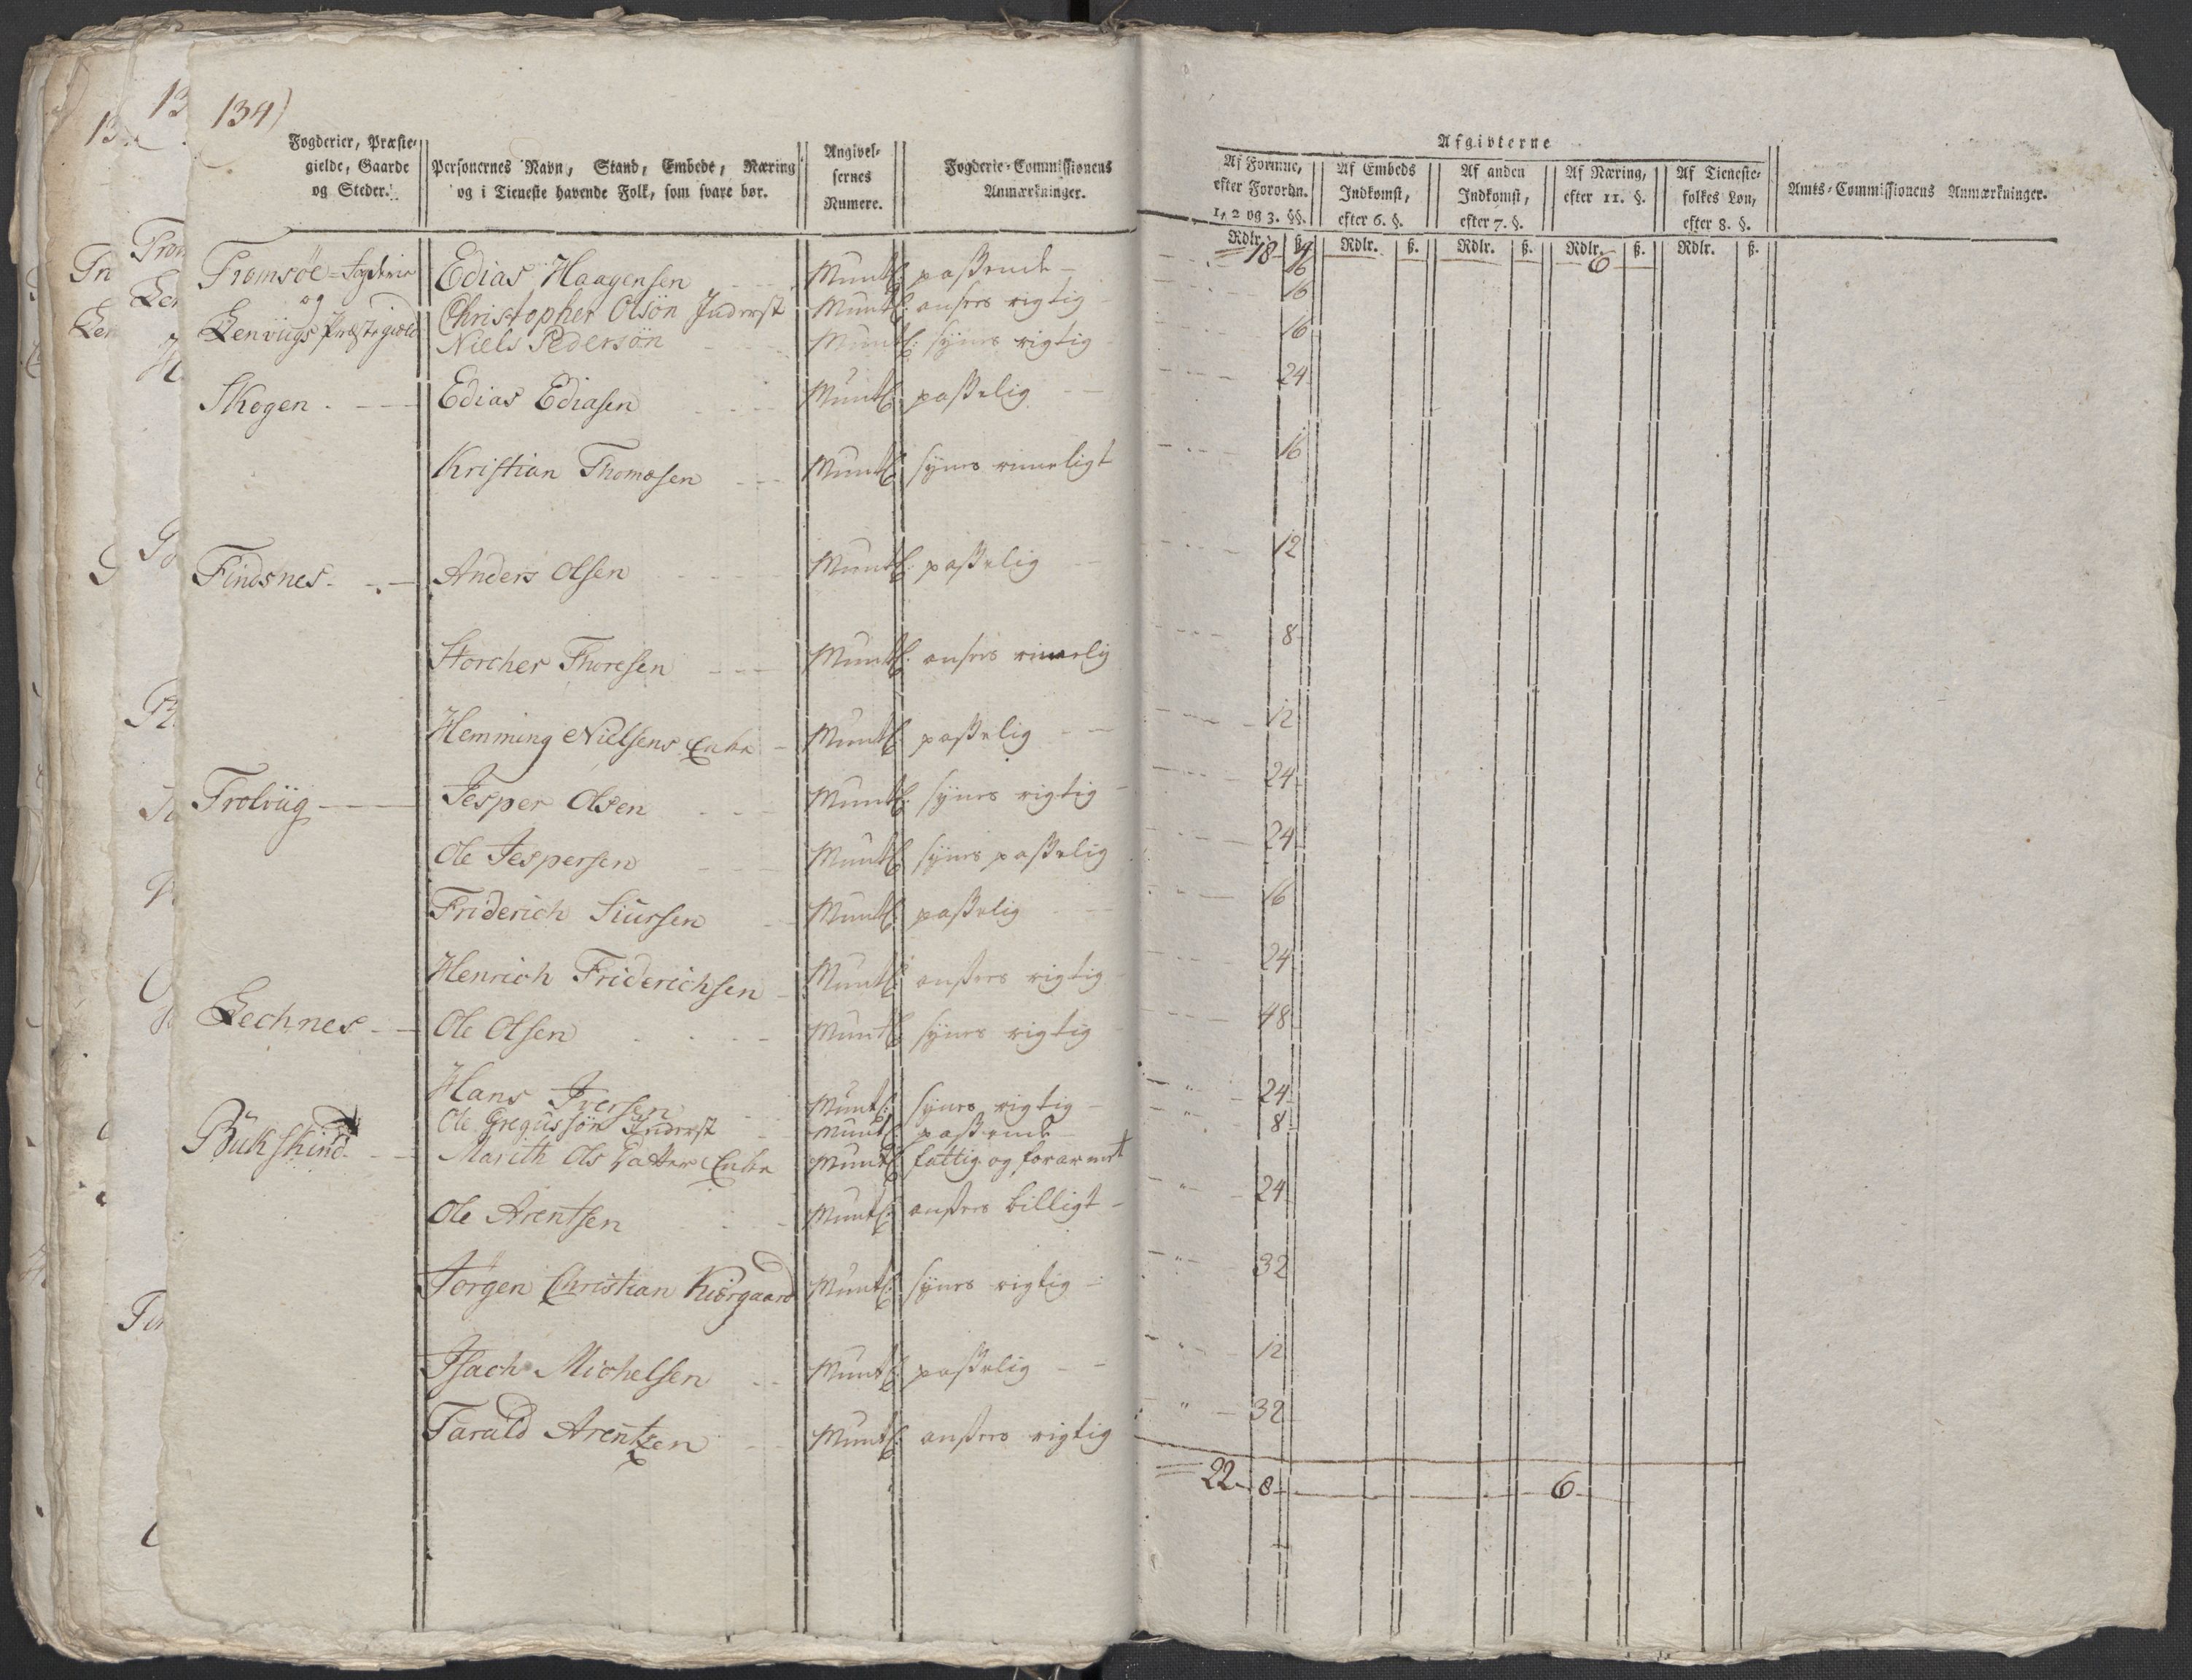 134)
Fogderier, Præste-
gielde, Gaarde
og Steder.
Personernes Navn, Stand, Embede, Næring
og i Tieneste havende Folk, som svare bør.
Angivel-
sernes
Numere.
Fogderie-Commissionens
Anmærkninger.
Afgivterne
Af Formue,
efter Forordn.
1, 2 og 3. §§.
Af Embeds
Indkomst,
efter 6. §.
Af anden
Indkomst,
efter 7. §.
Af Næring,
efter 11. §.
Af Tieneste-
folkes Løn,
efter 8. §.
Amts-Commissionens Anmærkninger.
Rdlr. ß. Rdlr. ß. Rdlr. ß. Rdlr. ß. Rdlr. ß.
18 4 6
Tromsöe-Fogderie Edias Haagensen Muntl: passende 16
og
Christopher Olsön Inderst Muntl: ansees rigtig 16
Lenviigs Præstegield Niels Pedersön Muntl: synes rigtig 16
Skogen Edias Ediasen Muntl: passelig 24
Kristian Thomasen Muntl: synes rimeligt 16
Findsnes Anders Olsen Muntl: passelig 12
Storcher Thoresen Muntl: ansees rimelig 8
Hemming Nielsens Enke Muntl: passelig 12
Trolviig Jesper Olsen Muntl: synes rigtig 24
Ole Jespersen Muntl: synes passelig 24
Friderich Siursen Muntl: passelig 16
Henrich Friderichsen Muntl: ansees rigtig 24
Lechnes Ole Olsen Muntl: synes rigtig 48
Hans Iversen Muntl: synes rigtig 24
Ole Gregussön Inderst Muntl: passende 8
Bukskind Marith Ols Datter Enke Muntl: fattig og forarmet
Ole Arentsen Muntl: ansees billigt 24
Jörgen Christian Kiörgaard Muntl: synes rigtig 32
Isach Michelsen Muntl: passelig 12
Tarald Arentzen Muntl: ansees rigtig 32
22 8 6